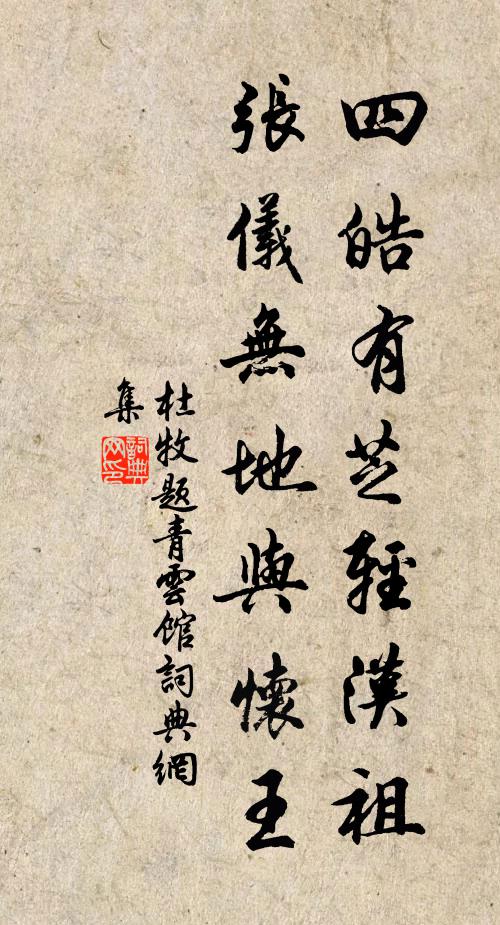 四皓有芝輕漢祖
張儀無地與懷王
杜牧题青雲館詞典網
集
詞典
网印